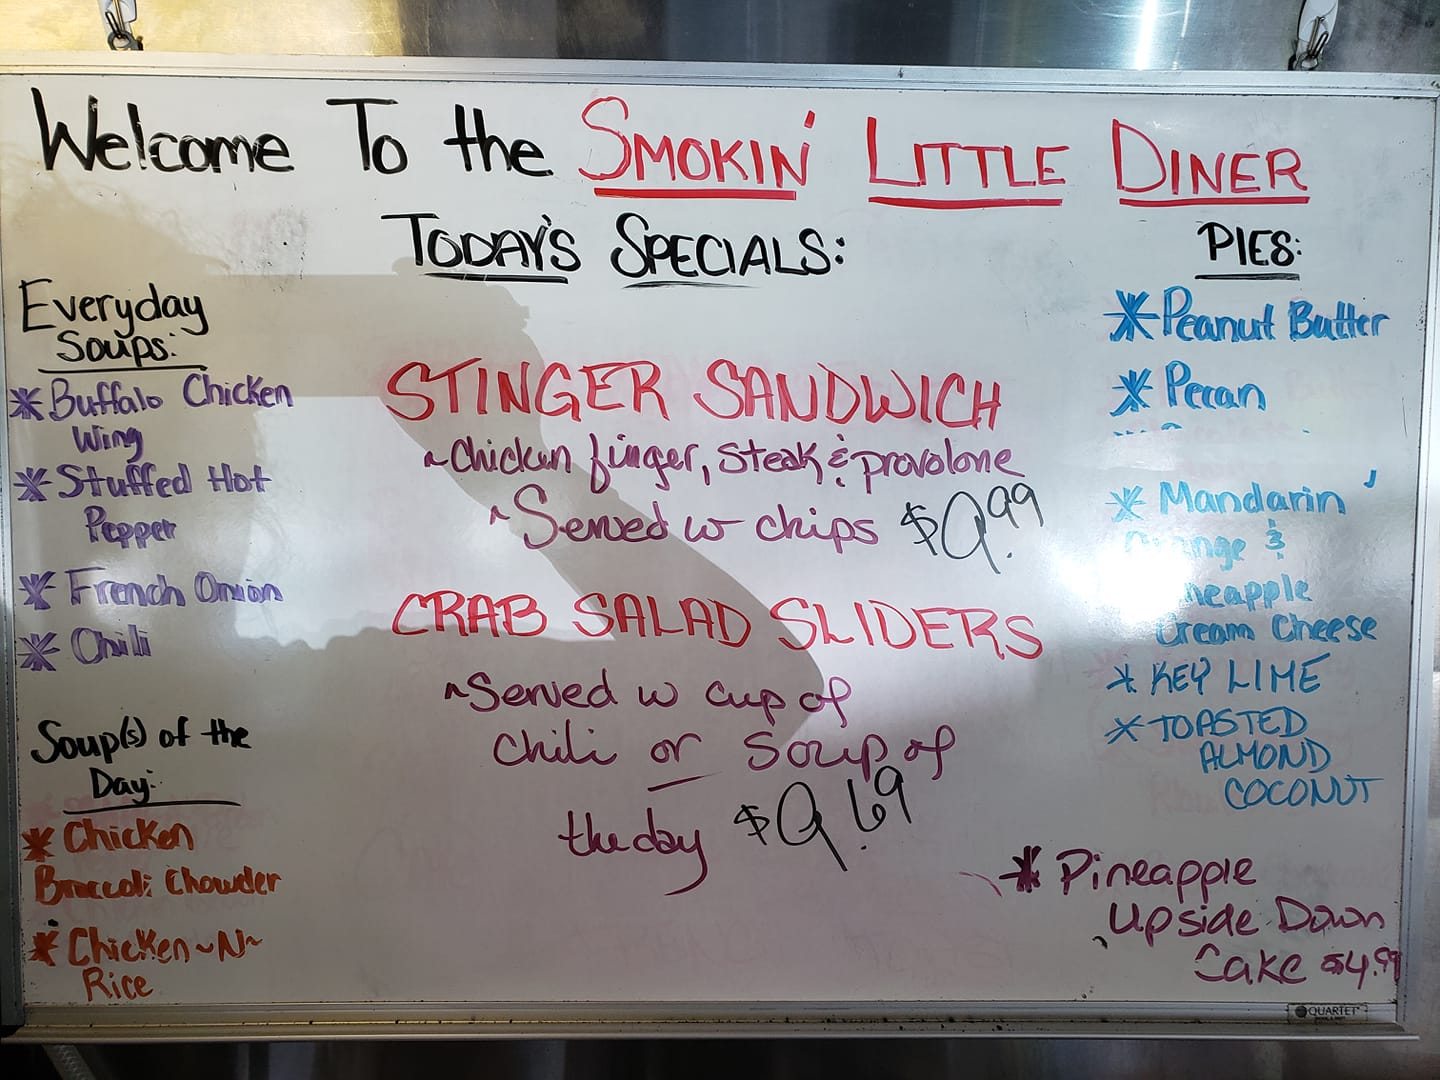 Welcome To the SMOKIN' LITTLE DINER
TODAY'S SPECIALS:
Everyday
Soups:
* Buffalo Chicken
Wing
* Stuffed Hot
Pepper
* French Onion
* Chili
Soup(s) of the
Day:
* Chicken
Broccoli Chowder
* Chicken ~N~
Rice
STINGER SANDWICH
~Chicken finger, steak & provolone
~Served w chips $9.99
CRAB SALAD SLIDERS
~Served w cup of
chili or soup of
the day $9.69
PIES:
* Peanut Butter
* Pecan
* Mandarin
Orange &
Pineapple
Cream Cheese
* KEY LIME
* TOASTED
ALMOND
COCONUT
* Pineapple
Upside Down
Cake $4.99
QUARTET